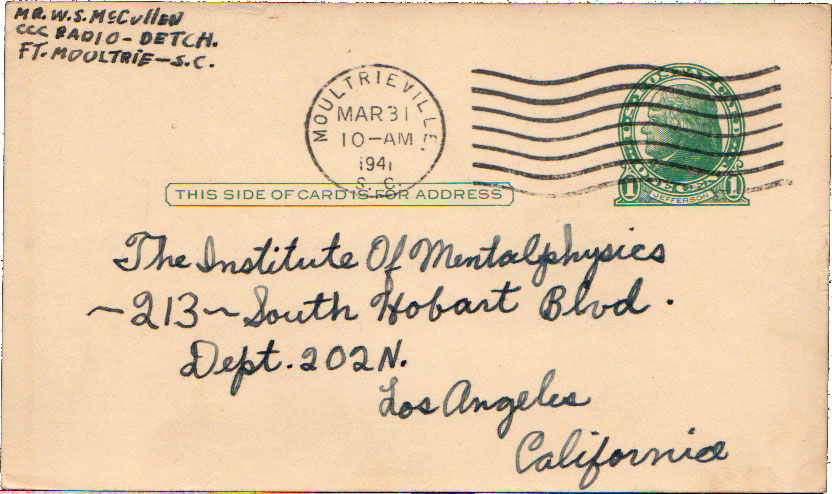 MR. W.S. McCullen
CCC RADIO - DETCH.
FT. MOULTRIE - S.C.
MOULTRIEVILLE,
MAR 31
10-AM
1941
S. C.
U.S. POSTAL CARD
ONE CENT
1 JEFFERSON 1
THIS SIDE OF CARD IS FOR ADDRESS
The Institute Of Mentalphysics
~213~ South Hobart Blvd.
Dept. 202N.
Los Angeles
California